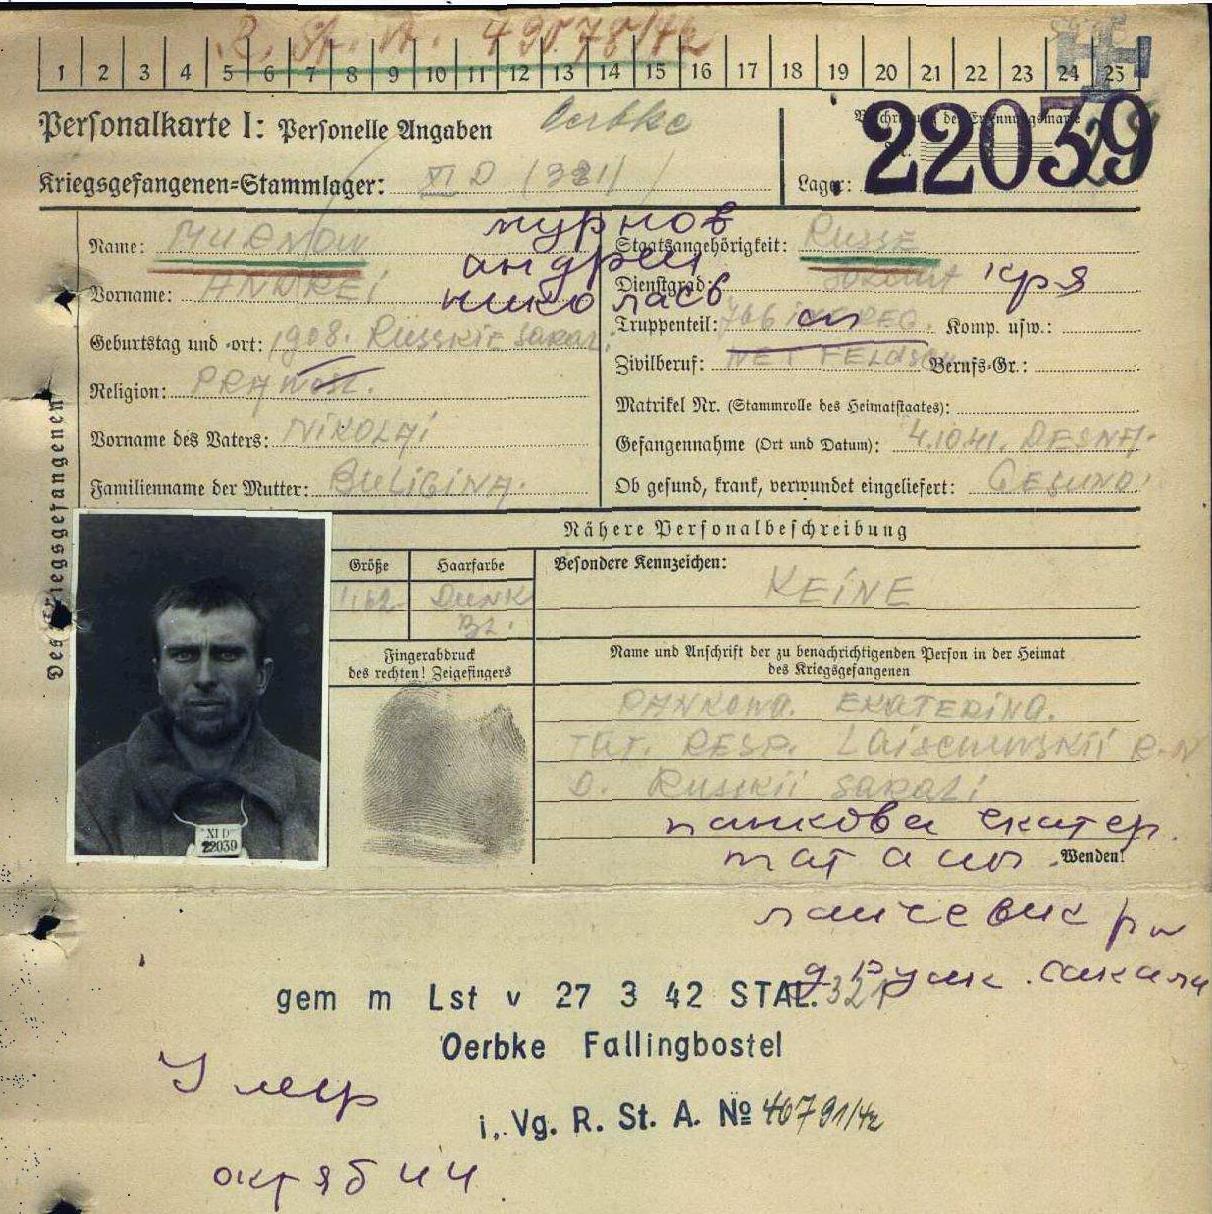 R. St. A. 49078/42
1 2 3 4 5 6 7 8 9 10 11 12 13 14 15 16 17 18 19 20 21 22 23 24 25
Personalkarte I: Personelle Angaben Oerbke
Kriegsgefangenen=Stammlager: XI D (321)
22039
Lager:
Name: MURNOW
мурнов
Staatsangehörigkeit: RUSSE
Vorname: ANDREI
андреи
Dienstgrad: Soldat кра
николаев
Geburtstag und -ort: 1908. RUSSKIE SARALI
Truppenteil: 766 INF REG. Komp. usw.:
Religion: PRAWOSL.
Zivilberuf: Berufs=Gr.:
Matrikel Nr. (Stammrolle des Heimatstaates):
Vorname des Vaters: NIKOLAI
Gefangennahme (Ort und Datum): 4.10.41. DESNA.
Familienname der Mutter: BULIGINA.
Ob gesund, krank, verwundet eingeliefert: GESUND.
Des Kriegsgefangenen
Nähere Personalbeschreibung
Größe Haarfarbe Besondere Kennzeichen:
1,62 DUNK BL. KEINE
Fingerabdruck
des rechten! Zeigefingers
Name und Anschrift der zu benachrichtigenden Person in der Heimat
des Kriegsgefangenen
PANKOWA. EKATERINA.
TAT. RESP. LAISCHEWSKII R-N
D. RUSSKII SARALI
XI D
22039
панкова екатер.
тат
Wenden!
лаишевик рн
д Руск. сакали
gem m Lst v 27 3 42 STAL. 321
Oerbke Fallingbostel
Умер
i. Vg. R. St. A. № 40791/42
октяб 44.